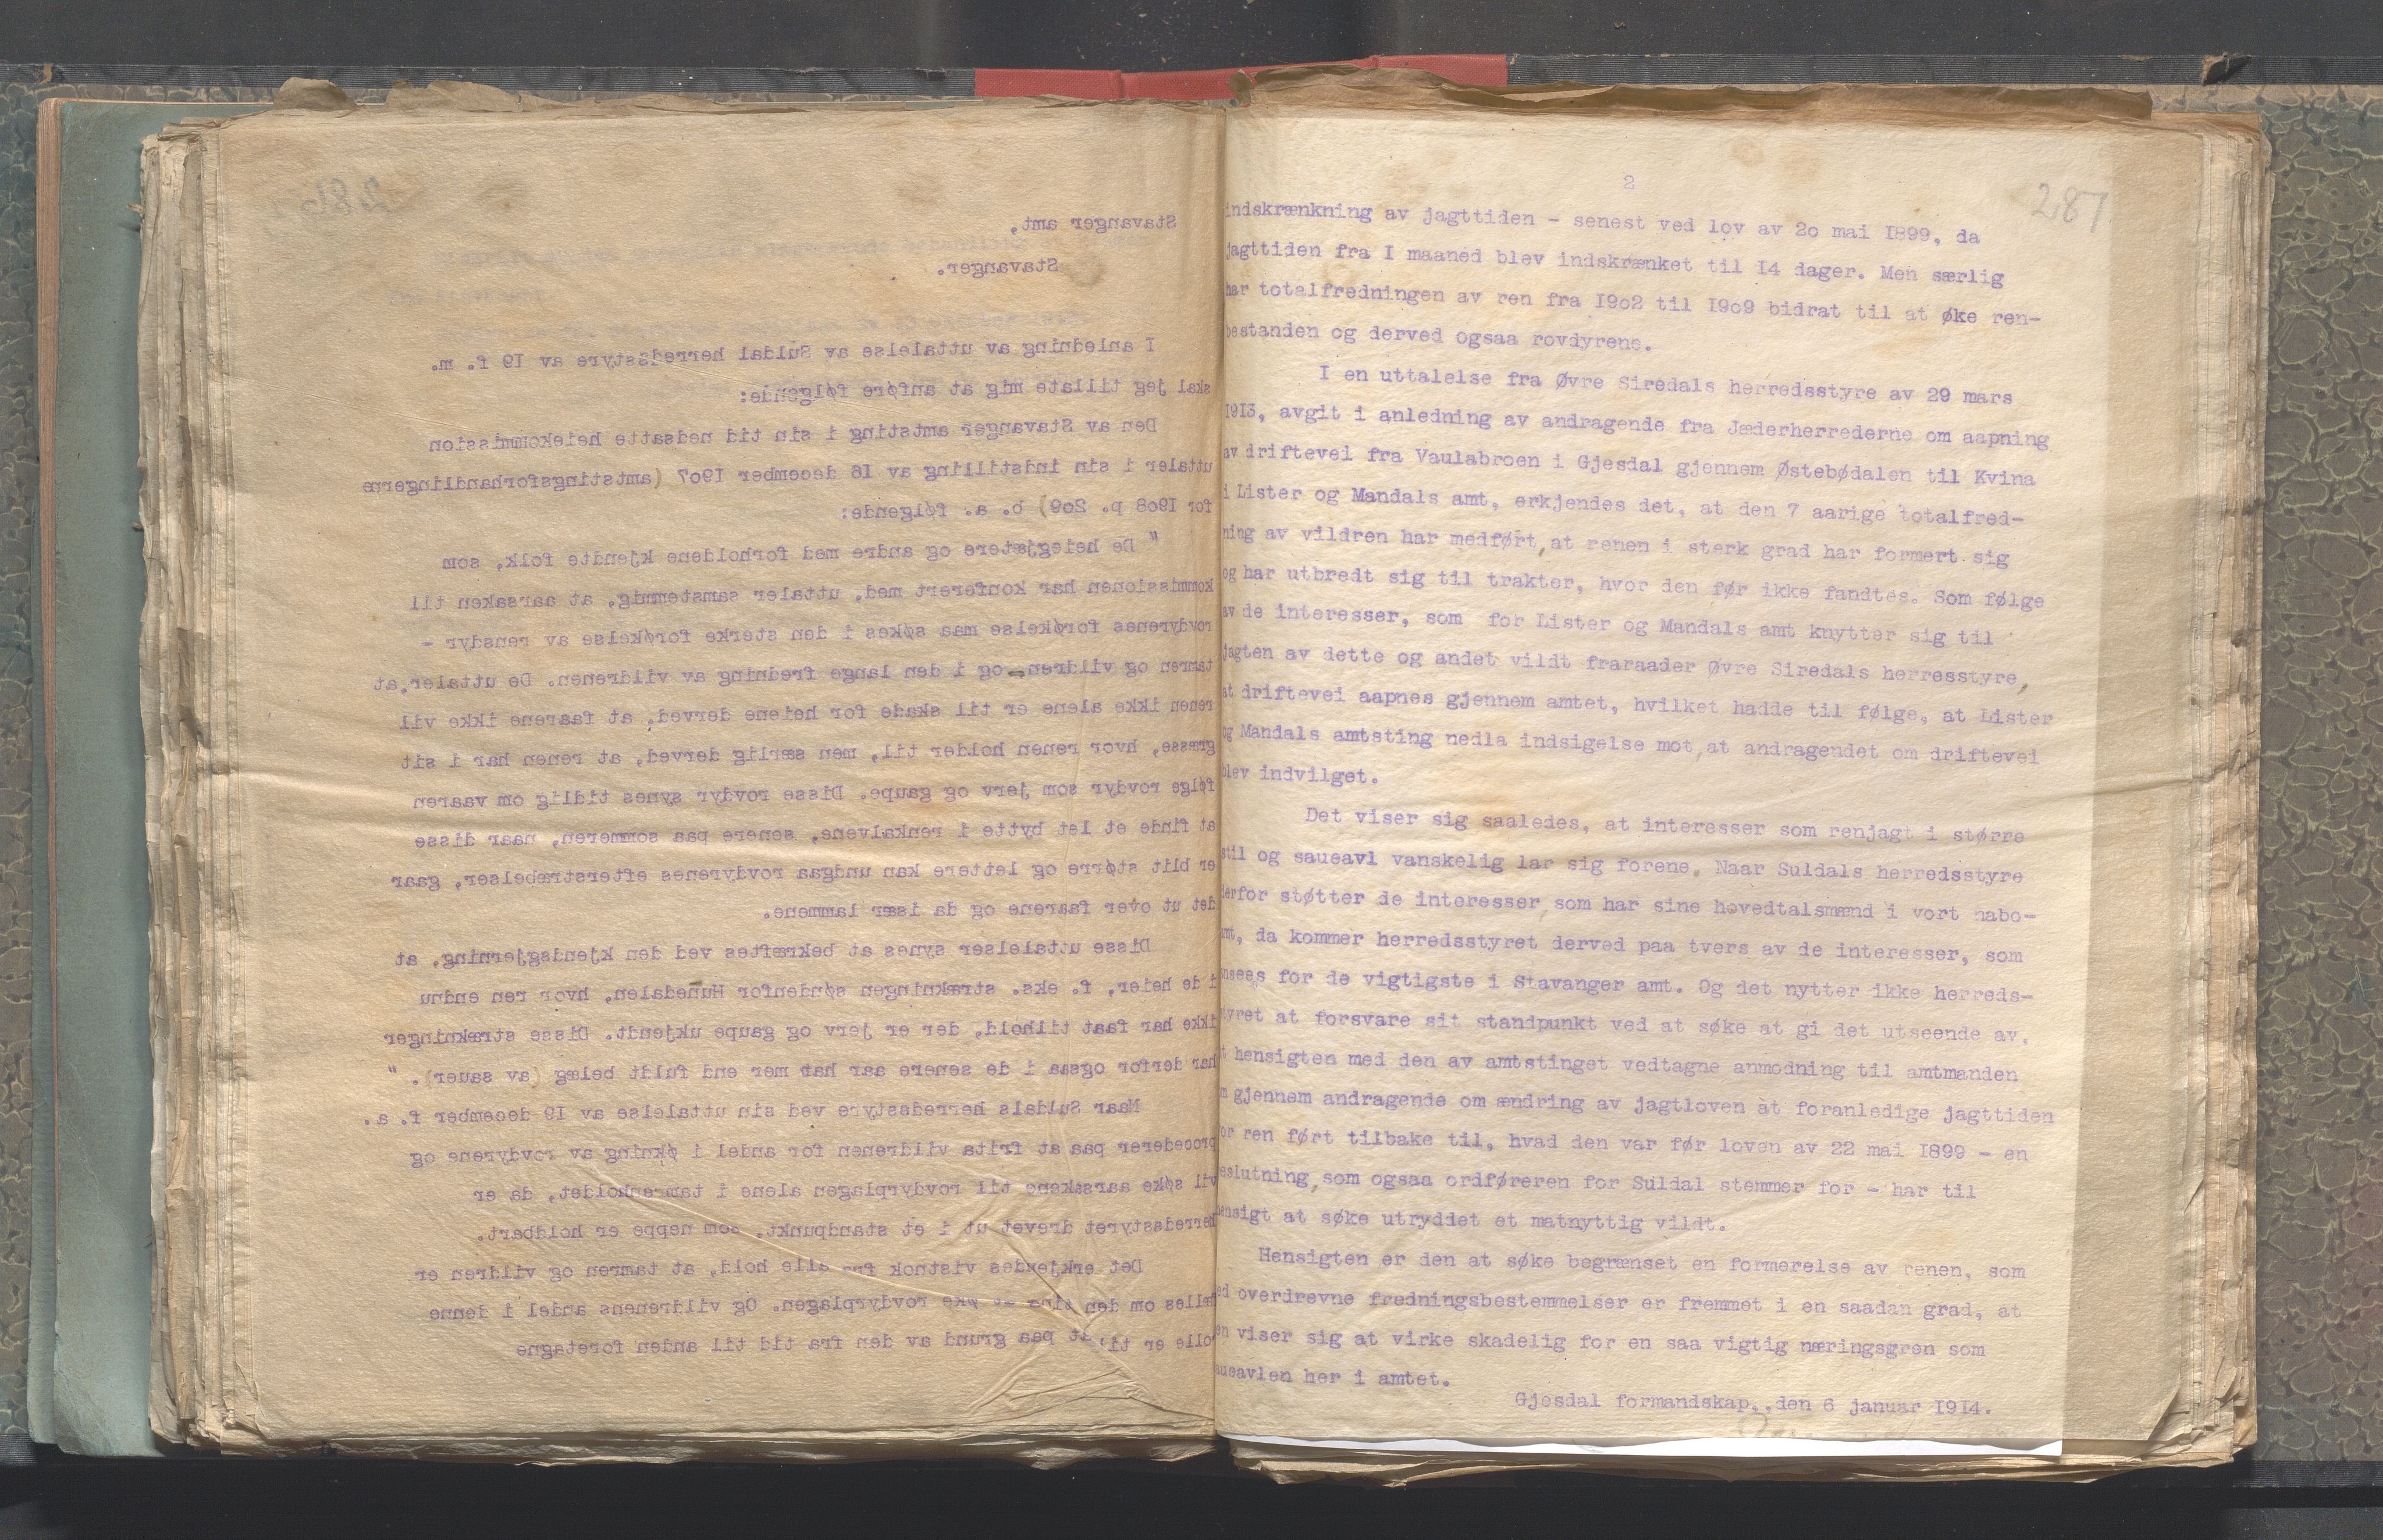 286
Stavanger amt,
Stavanger.
I anledning av uttalelse av Suldal herredsstyre av 19 f. m.
skal jeg tillate mig at anføre følgende:
Den av Stavanger amtsting i sin tid nedsatte heiekommission
uttaler i sin indstilling av 16 december 1907 (amtstingsforhandlingerne
for 1908 p. 209) b. a. følgende:
" De heiegjætere og andre med forholdene kjendte folk, som
kommissionen har konferert med, uttaler samstemmig, at aarsaken til
rovdyrenes forøkelse maa søkes i den sterke forøkelse av rensdyr -
tamren og vildren - og i den lange fredning av vildrenen. De uttaler, at
renen ikke alene er til skade for heiene derved, at faarene ikke vil
græsse, hvor renen holder til, men særlig derved, at renen har i sit
følge rovdyr som jerv og gaupe. Disse rovdyr synes tidlig om vaaren
at finde et let bytte i renkalvene, senere paa sommeren, naar disse
er blit større og lettere kan undgaa rovdyrenes efterstræbelser, gaar
det ut over faarene og da især lammene.
Disse uttalelser synes at bekræftes ved den kjendsgjerning, at
i de heier, f. eks. strækningen søndenfor Hunedalen, hvor ren endnu
ikke har faat tilhold, der er jerv og gaupe ukjendt. Disse strækninger
har derfor ogsaa i de senere aar hat mer end fuldt belæg (av sauer). "
Naar Suldals herredsstyre ved sin uttalelse av 19 december f. a.
procederer paa at frita vildrenen for andel i økning av rovdyrene og
vil søke aarsakene til rovdyrplagen alene i tamrenholdet, da er
herredsstyret drevet ut i et standpunkt, som neppe er holdbart.
Det erkjendes vistnok fra alle hold, at tamren og vildren er
fælles om den ting at øke rovdyrplagen. Og vildrenens andel i denne
rolle er ti at paa grund av den fra tid til anden foretagne
2
287
indskrænkning av jagttiden - senest ved lov av 20 mai 1899, da
jagttiden fra I maaned blev indskrænket til 14 dager. Men særlig
har totalfredningen av ren fra 1902 til 1909 bidrat til at øke ren-
bestanden og derved ogsaa rovdyrene.
I en uttalelse fra Øvre Siredals herredsstyre av 29 mars
1913, avgit i anledning av andragende fra Jæderherrederne om aapning
av driftevei fra Vaulabroen i Gjesdal gjennem Østebødalen til Kvina
i Lister og Mandals amt, erkjendes det, at den 7 aarige totalfred-
ning av vildren har medført, at renen i sterk grad har formert sig
og har utbredt sig til trakter, hvor den før ikke fandtes. Som følge
av de interesser, som for Lister og Mandals amt knytter sig til
jagten av dette og andet vildt fraraader Øvre Siredals herresstyre,
at driftevei aapnes gjennem amtet, hvilket hadde til følge, at Lister
og Mandals amtsting nedla indsigelse mot, at andragendet om driftevei
blev indvilget.
Det viser sig saaledes, at interesser som renjagt i større
stil og saueavl vanskelig lar sig forene. Naar Suldals herredsstyre
derfor støtter de interesser, som har sine hovedtalsmænd i vort nabo-
amt, da kommer herredsstyret derved paa tvers av de interesser, som
ansees for de vigtigste i Stavanger amt. Og det nytter ikke herreds-
styret at forsvare sit standpunkt ved at søke at gi det utseende av,
at hensigten med den av amtstinget vedtagne anmodning til amtmanden
om gjennem andragende om ændring av jagtloven at foranledige jagttiden
for ren ført tilbake til, hvad den var før loven av 22 mai 1899 - en
beslutning, som ogsaa ordføreren for Suldal stemmer for - har til
hensigt at søke utryddet et matnyttig vildt.
Hensigten er den at søke begrænset en formerelse av renen, som
ved overdrevne fredningsbestemmelser er fremmet i en saadan grad, at
den viser sig at virke skadelig for en saa vigtig næringsgren som
saueavlen her i amtet.
Gjesdal formandskap, den 6 januar 1914.